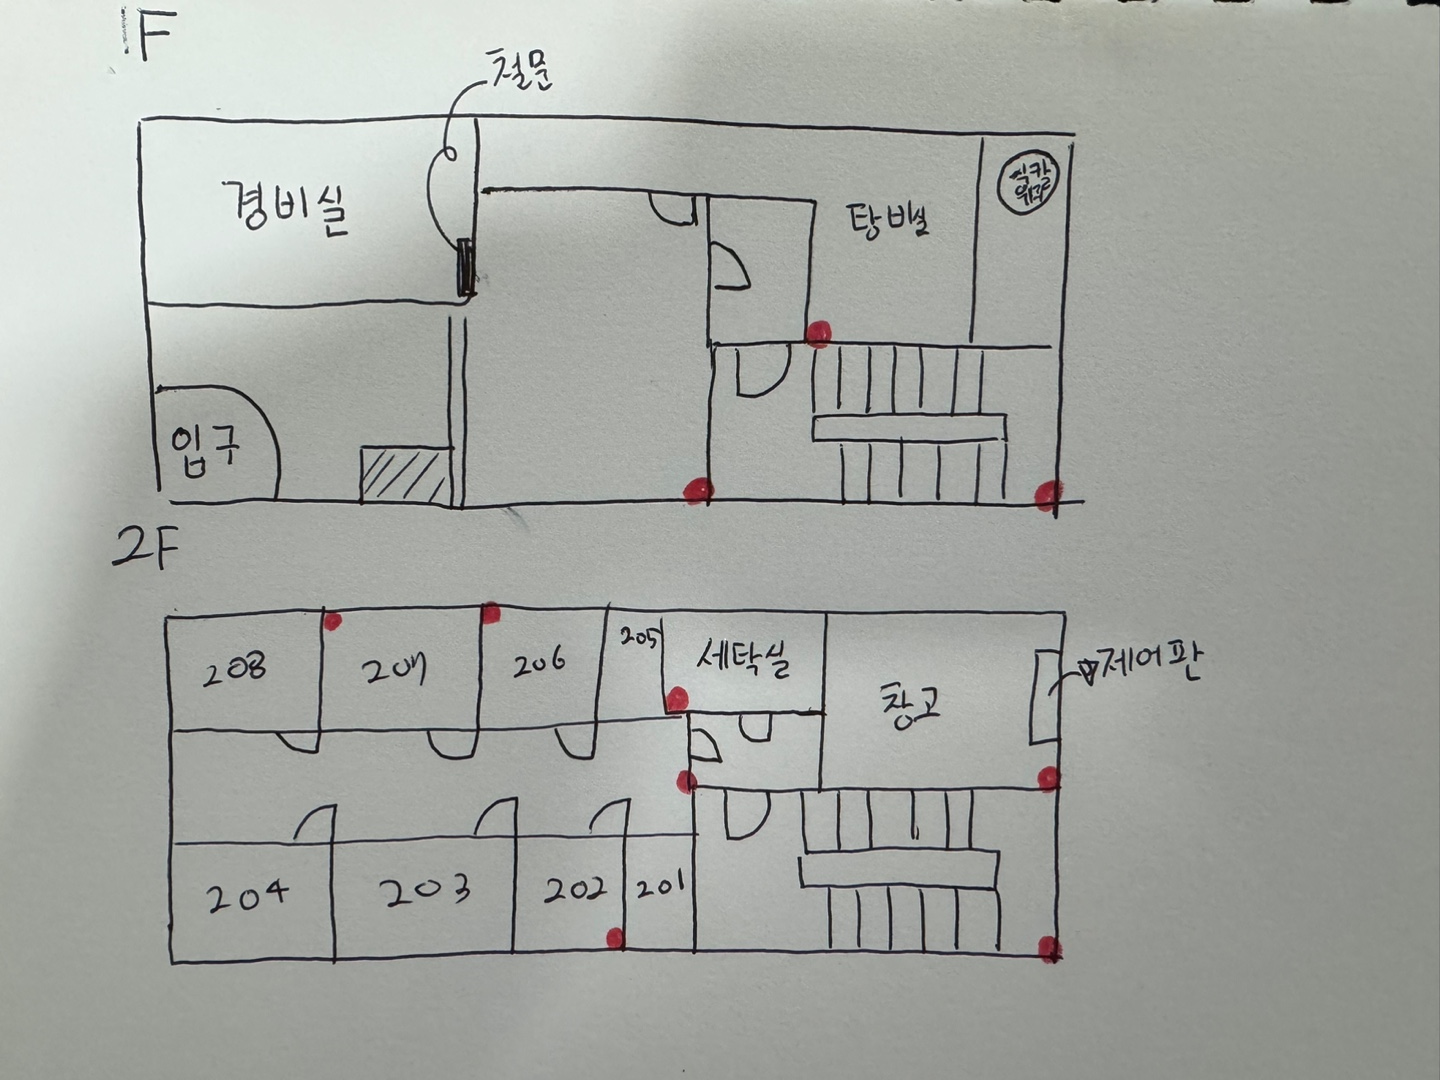 1F
철문
경비실
탕비실
식칼
위치
입구
2F
208
207
206
205
세탁실
창고
제어판
204
203
202
201